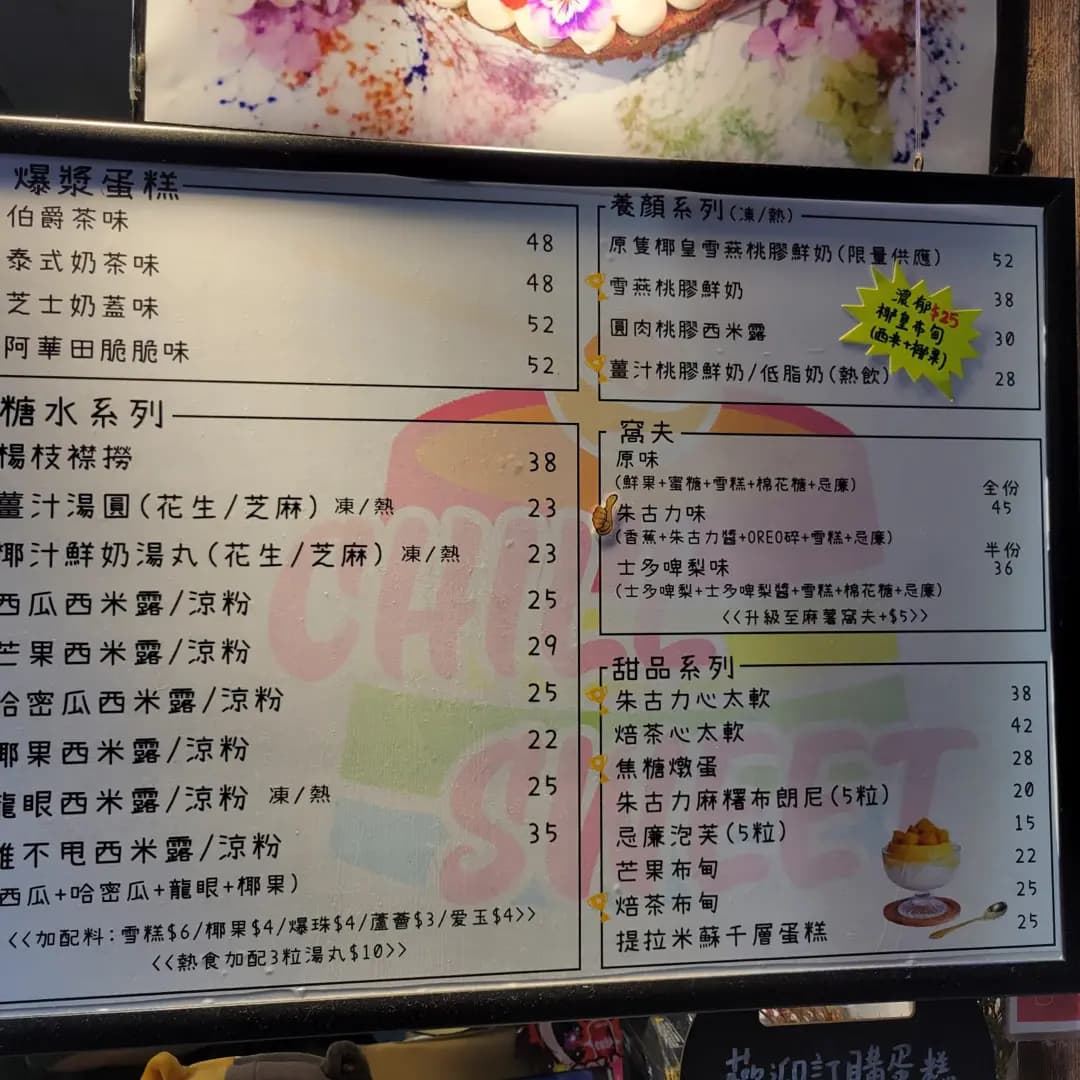 爆漿蛋糕
伯爵茶味 48
泰式奶茶味 48
芝士奶蓋味 52
阿華田脆脆味 52
糖水系列
楊枝襟撈 38
薑汁湯圓(花生/芝麻) 凍/熱 23
椰汁鮮奶湯丸(花生/芝麻) 凍/熱 23
西瓜西米露/涼粉 25
芒果西米露/涼粉 29
哈密瓜西米露/涼粉 25
椰果西米露/涼粉 22
龍眼西米露/涼粉 凍/熱 25
雜不甩西米露/涼粉 35
西瓜+哈密瓜+龍眼+椰果)
<<加配料:雪糕$6/椰果$4/爆珠$4/蘆薈$3/爱玉$4>>
<<熱食加配3粒湯丸$10>>
養顏系列(凍/熱)
原隻椰皇雪燕桃膠鮮奶(限量供應) 52
雪燕桃膠鮮奶 38
圓肉桃膠西米露 30
薑汁桃膠鮮奶/低脂奶(熱飲) 28
濃郁$25
椰皇布甸
(西米+椰果)
窩夫
原味
(鮮果+蜜糖+雪糕+棉花糖+忌廉)
全份
45
朱古力味
(香蕉+朱古力醬+OREO碎+雪糕+忌廉)
半份
36
士多啤梨味
(士多啤梨+士多啤梨醬+雪糕+棉花糖+忌廉)
<<升級至麻薯窩夫+$5>>
甜品系列
朱古力心太軟 38
焙茶心太軟 42
焦糖燉蛋 28
朱古力麻糬布朗尼(5粒) 20
忌廉泡芙(5粒) 15
芒果布甸 22
焙茶布甸 25
提拉米蘇千層蛋糕 25
CHILL
SWEET
歡迎訂購蛋糕